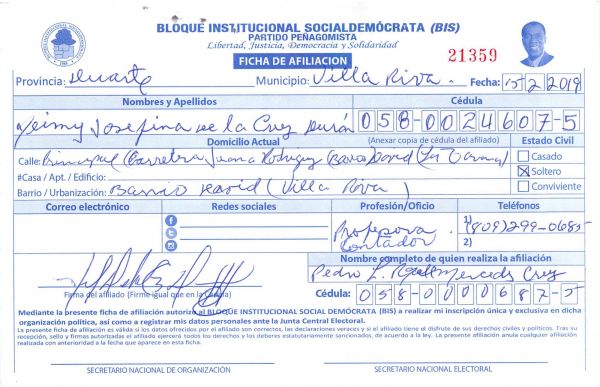 BLOQUE INSTITUCIONAL SOCIALDEMÓCRATA (BIS)
PARTIDO PEÑAGOMISTA
Libertad, Justicia, Democracia y Solidaridad
FICHA DE AFILIACION
21359
Provincia: Duarte Municipio: Villa Riva. Fecha: 15/2/2019
Nombres y Apellidos Cédula
Yeimy Josefina De la Cruz Durán 058-0024607-5
Domicilio Actual (Anexar copia de cédula del afiliado) Estado Civil
Calle: Principal (Carretera Juana Rodriguez (Barrio David (La
Casado
#Casa / Apt. / Edificio:
Soltero
Barrio / Urbanización: Barrio David (Villa Riva)
Conviviente
Correo electrónico Redes sociales Profesión/Oficio Teléfonos
Profesora 1) (809) 299-0685
Contador 2)
Nombre completo de quien realiza la afiliación
Pedro Mercedes Cruz
Firma del afiliado (Firme igual que en la Cédula)
Cédula: 058-0000687-5
Mediante la presente ficha de afiliación autorizo al BLOQUE INSTITUCIONAL SOCIAL DEMÓCRATA (BIS) a realizar mi inscripción única y exclusiva en dicha
organización política, así como a registrar mis datos personales ante la Junta Central Electoral.
La presente ficha de afiliación es válida si los datos ofrecidos por el afiliado son correctos, las declaraciones veraces y si el afiliado tiene el disfrute de sus derechos civiles y políticos. Tras su
recepción, sello y firmas autorizadas el afiliado ejercerá todos los derechos y los deberes estatutariamente sancionados, de acuerdo a la ley. La presente afiliación anula cualquier afiliación
realizada con anterioridad a la fecha que aparece en esta ficha.
SECRETARIO NACIONAL DE ORGANIZACIÓN SECRETARIO NACIONAL ELECTORAL